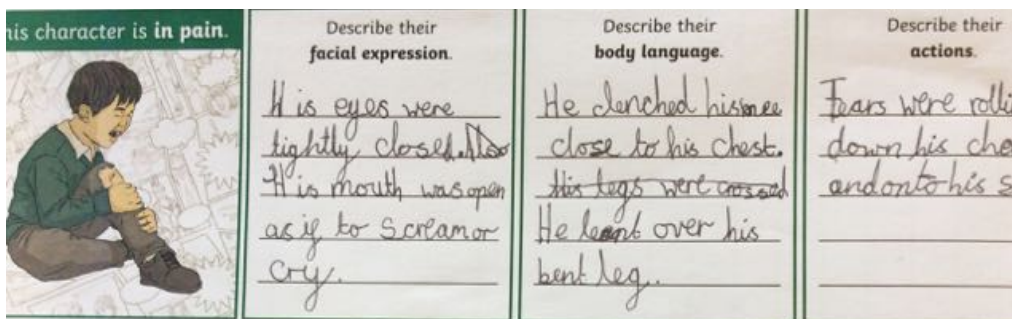 his character is in pain.
Describe their
facial expression.
His eyes were
tightly closed. Also
His mouth was open
as if to scream or
cry.
Describe their
body language.
He clenched his knee
close to his chest.
His legs were crossed
He leant over his
bent leg.
Describe their
actions.
Tears were rolli
down his che
and onto his s